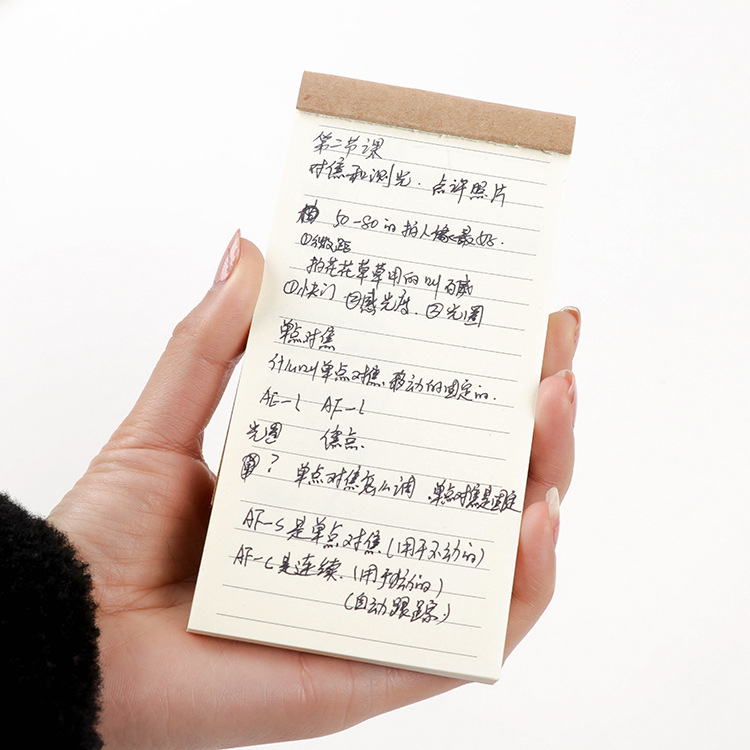 第二节课
对焦和测光．点评照片
50-80的拍人像最好．
①微距
拍花花草草用的叫百威
①快门 ②感光度．③光圈
单点对焦
什么叫单点对焦，移动的固定的．
AE-L AF-L
光圈 焦点
? 单点对焦怎么调 单点对焦是固定
AF-S是单点对焦(用于不动的)
AF-C是连续．(用于动的)
(自动跟踪．)